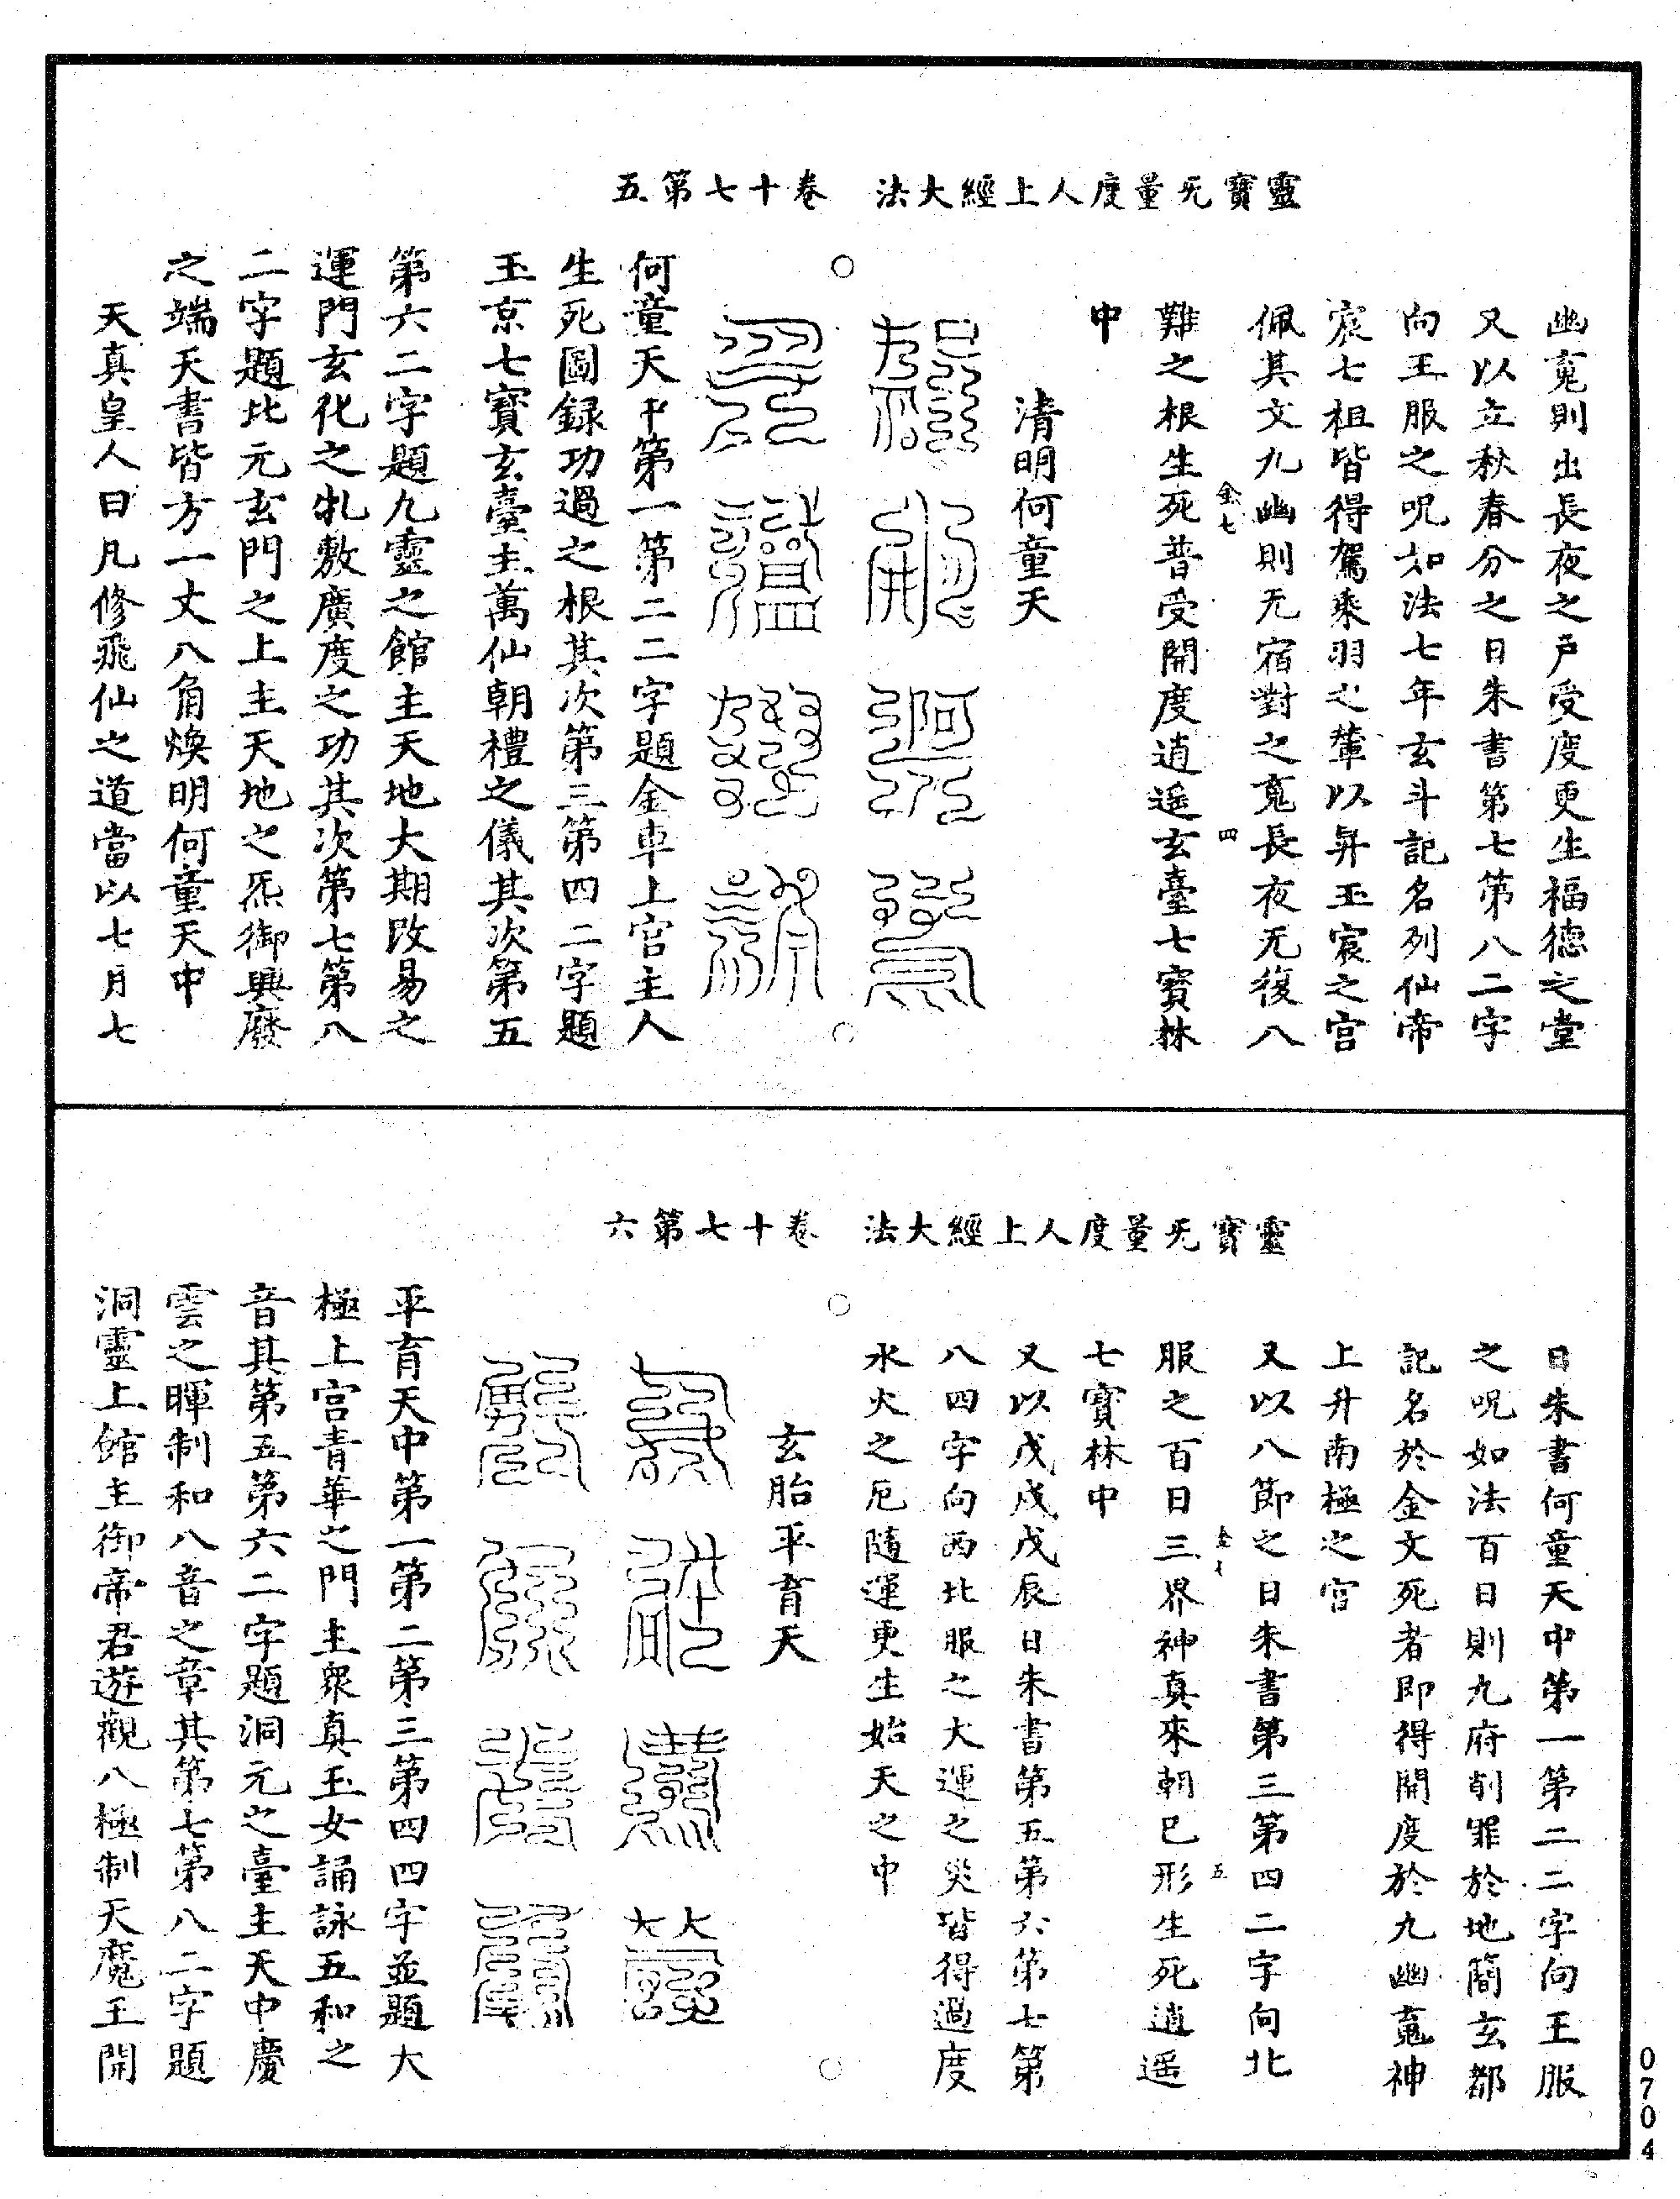 靈寶无量度人上經大法　卷十七第五
幽䰟則出長夜之戶受度更生福德之堂
又以立秋春分之日朱書第七第八二字
向王服之呪如法七年玄斗記名列仙帝
宸七祖皆得駕乘羽之輦以昇玉宸之宮
佩其文九幽則无宿對之䰟長夜无復八
金七　四
難之根生死普受開度逍遥玄臺七寶林
中
清明何童天
何童天中第一第二二字題金車上宮主人
生死圖録功過之根其次第三第四二字題
玉京七寶玄臺主萬仙朝禮之儀其次第五
第六二字題九靈之館主天地大期改易之
運門玄化之軋敷廣度之功其次第七第八
二字題比元玄門之上主天地之炁御興廢
之端天書皆方一丈八角煥明何童天中
天真皇人曰凡修飛仙之道當以七月七
靈寶无量度人上經大法　卷十七第六
日朱書何童天中第一第二二字向王服
之呪如法百日則九府削罪於地簡玄都
記名於金文死者即得開度於九幽䰟神
上升南極之宮
又以八節之日朱書第三第四二字向北
五
服之百日三界神真來朝已形生死逍遥
七寶林中
又以戊戌戊辰日朱書第五第六第七第
八四字向西北服之大運之災皆得過度
水火之厄隨運更生始天之中
玄胎平育天
平育天中第一第二第三第四四字並題大
極上宮青華之門主衆真玉女誦詠五和之
音其第五第六二字題洞元之臺主天中慶
雲之暉制和八音之章其第七第八二字題
洞靈上館主御帝君遊觀八極制天魔王開
0704